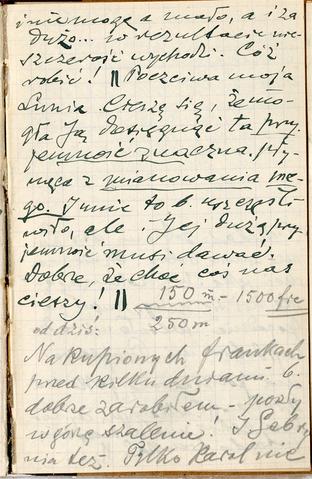 i nie mogę a mało, a i za
dużo... w rezultacie nie-
szczerość wychodzi. Cóż
robić! || Poczciwa moja
Lunia. Cieszę się, że mo-
gła Ją dosięgnąć ta przy-
jemność znaczna, pły-
nąca z mianowania me-
go. I mnie to b. uszczęśli-
wiło, ale Jej dużą przy-
jemność musi dawać.
Dobrze, że choć coś nas
cieszy! || 150 m - 1500 frc
od dziś: 250 m
Na kupionych frankach
przed kilku dniami b.
dobrze zarobiłem - poszły
w górę szalenie! I Gabry-
nia też. Tylko Karol nie